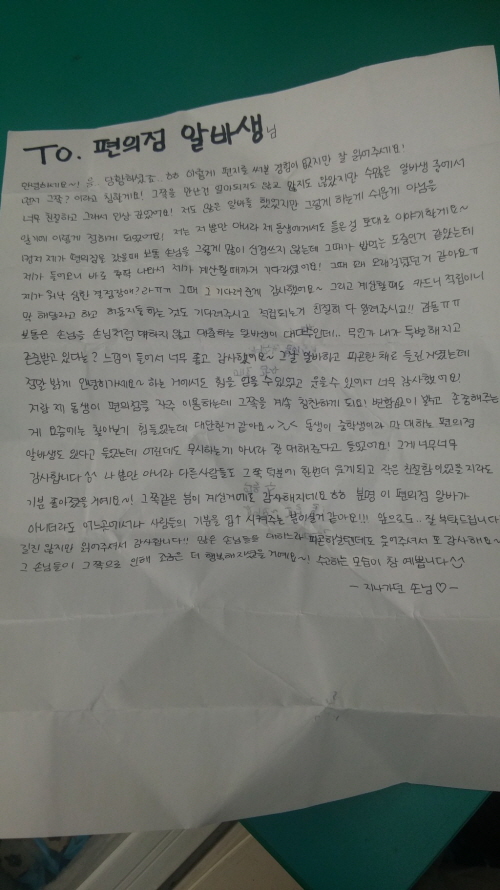 To. 편의점 알바생님
안녕하세요~! 음.. 당황하셨죠.. ㅎㅎ 이렇게 편지를 써본 경험이 없지만 잘 읽어주세요!
그쪽? 이라고 칭할게요! 그쪽을 만난건 얼마되지도 않고 많지도 않았지만 수많은 알바생 중에서
너무 친절하고 그래서 인상 깊었어요! 저도 많은 알바를 했었지만 그렇게 하는게 쉬운게 아님을
알기에 이렇게 적하게 되었어요! 저는 저 뿐만 아니라 제 동생에게서도 들은걸 토대로 이야기할게요~
먼저 제가 편의점을 갔을때 보통 손님을 그렇게 많이 신경쓰지 않는데 그때가 밥먹는 도중인거 같았는데
제가 들어오니 바로 후딱 나와서 제가 계산할때까지 기다려줬어요! 그때 꽤 오래걸렸던거 같아요ㅠ
제가 워낙 심한 결정장애? 라ㅠㅠ 그때 그 기다려준게 감사했어요~ 그리고 계산할때도 카드니 적립이니
막 해달라고 하고 허둥지둥 하는 것도 기다려주시고 적립되는거 친절히 다 알려주시고!! 감동ㅠㅠ
보통은 손님을 손님처럼 대하지 않고 대충하는 알바생이 대다수인데.. 무언가 내가 특별해지고
존중받고 있다는? 느낌이 들어서 너무 좋고 감사했어요~ 그날 알바하고 피곤한 채로 들린거였는데
정말 밝게 안녕히가세요~ 하는 거에서도 힘을 얻을 수 있었고 웃을 수 있어서 너무 감사했어요!
저랑 제 동생이 편의점을 자주 이용하는데 그쪽을 계속 칭찬하게 되요! 변함없이 밝고 존중해주는
게 요즘에는 찾아보기 힘들었는데 대단한거 같아요~ㅈㅅ 동생이 중학생이라 막 대하는 편의점
알바생도 있다고 들었는데 어린데도 무시하는게 아니라 잘 대해준다고 들었어요! 그게 너무너무
감사합니다 ^^ 나 뿐만 아니라 다른사람들도 그쪽 덕분에 한번더 웃게되고 작은 친절함이었을지라도
기분 좋아졌을거예요~! 그쪽같은 분이 계신거에도 감사해지네요 ㅎㅎ 분명 이 편의점 알바가
아니더라도 어느곳에서나 사람들의 기분을 업! 시켜주는 분이실거 같아요!!! 앞으로도.. 잘 부탁드립니다
길진 않지만 읽어주셔서 감사합니다!! 많은 손님들을 대하느라 피곤하실텐데도 웃어주셔서 또 감사해요~
그 손님들이 그쪽으로 인해 조금은 더 행복해지셨을거예요~! 수고하는 모습이 참 예쁩니다^^
- 지나가던 손님♡ -